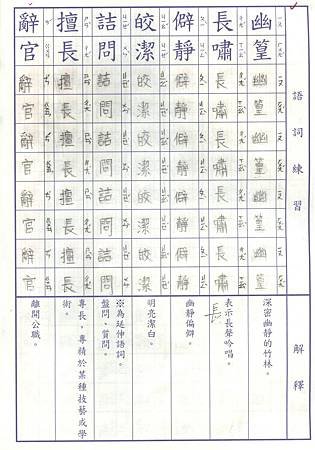 語詞練習
解釋
幽篁幽篁幽篁幽篁幽篁
深密幽靜的竹林。
長嘯長嘯長嘯長嘯長嘯
表示長聲吟唱。
長
僻靜僻靜僻靜僻靜僻靜
幽靜偏僻。
皎潔皎潔皎潔皎潔皎潔
明亮潔白。
詰問詰問詰問詰問詰問
※為延伸語詞。
盤問、質問。
擅長擅長擅長擅長擅長
專長，專精於某種技藝或學
術。
辭官辭官辭官辭官辭官
離開公職。